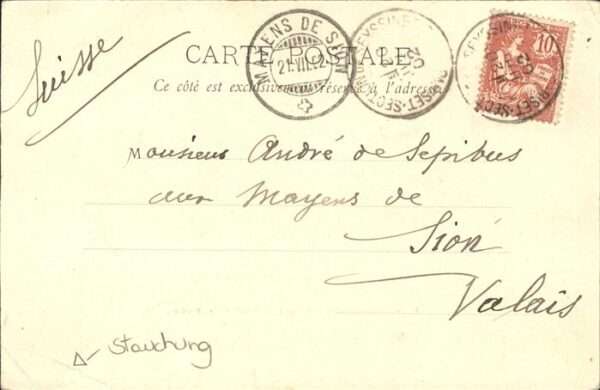 Suisse
CARTE POSTALE
Ce côté est exclusivement réservé à l'adresse
MAYENS DE SION
21.VII.02
10
Monsieur André de Sepibus
aux Mayens de
Sion
Valais
Stauchung